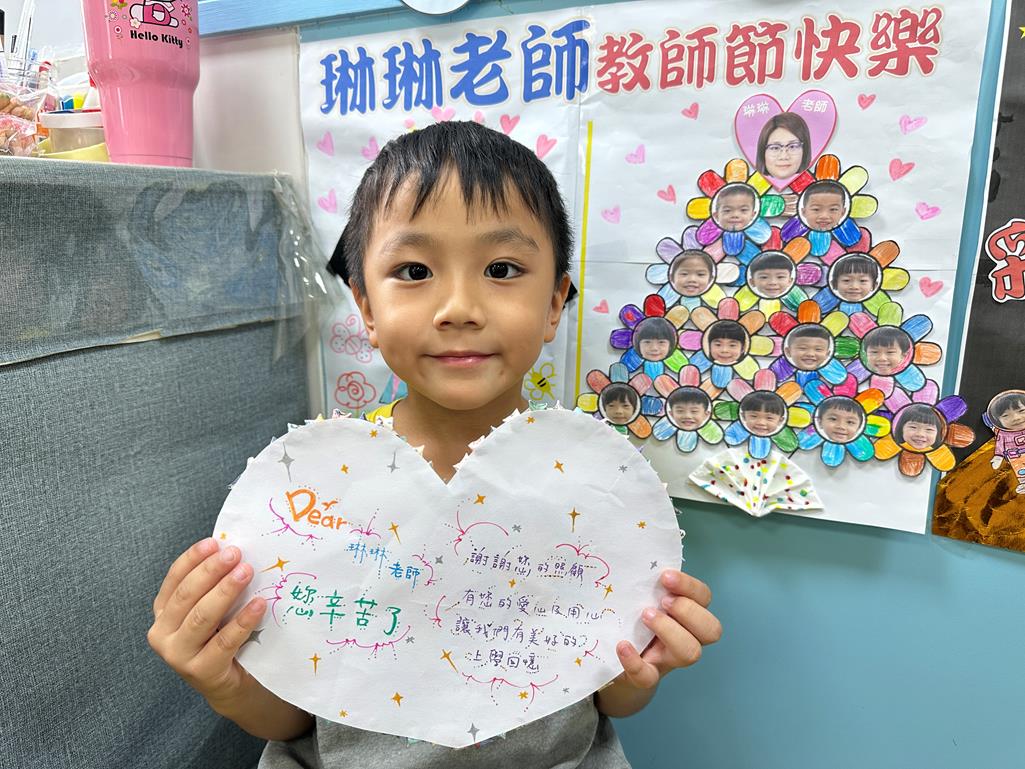 Hello Kitty
琳琳老師教師節快樂
琳琳 老師
Dear
琳琳
老師
妳辛苦了
謝謝您的照顧
有您的愛心及用心
讓我們有美好的
上學回憶